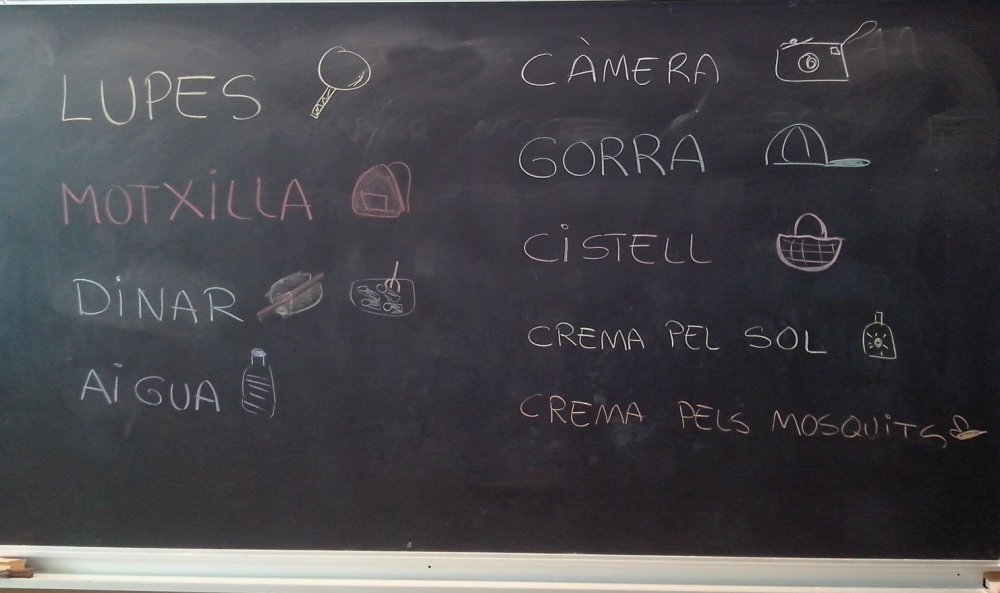 LUPES
MOTXiLLA
DiNAR
AiGUA
CÀMERA
GORRA
CiSTELL
CREMA PEL SOL
CREMA PELS MOSQUiTS